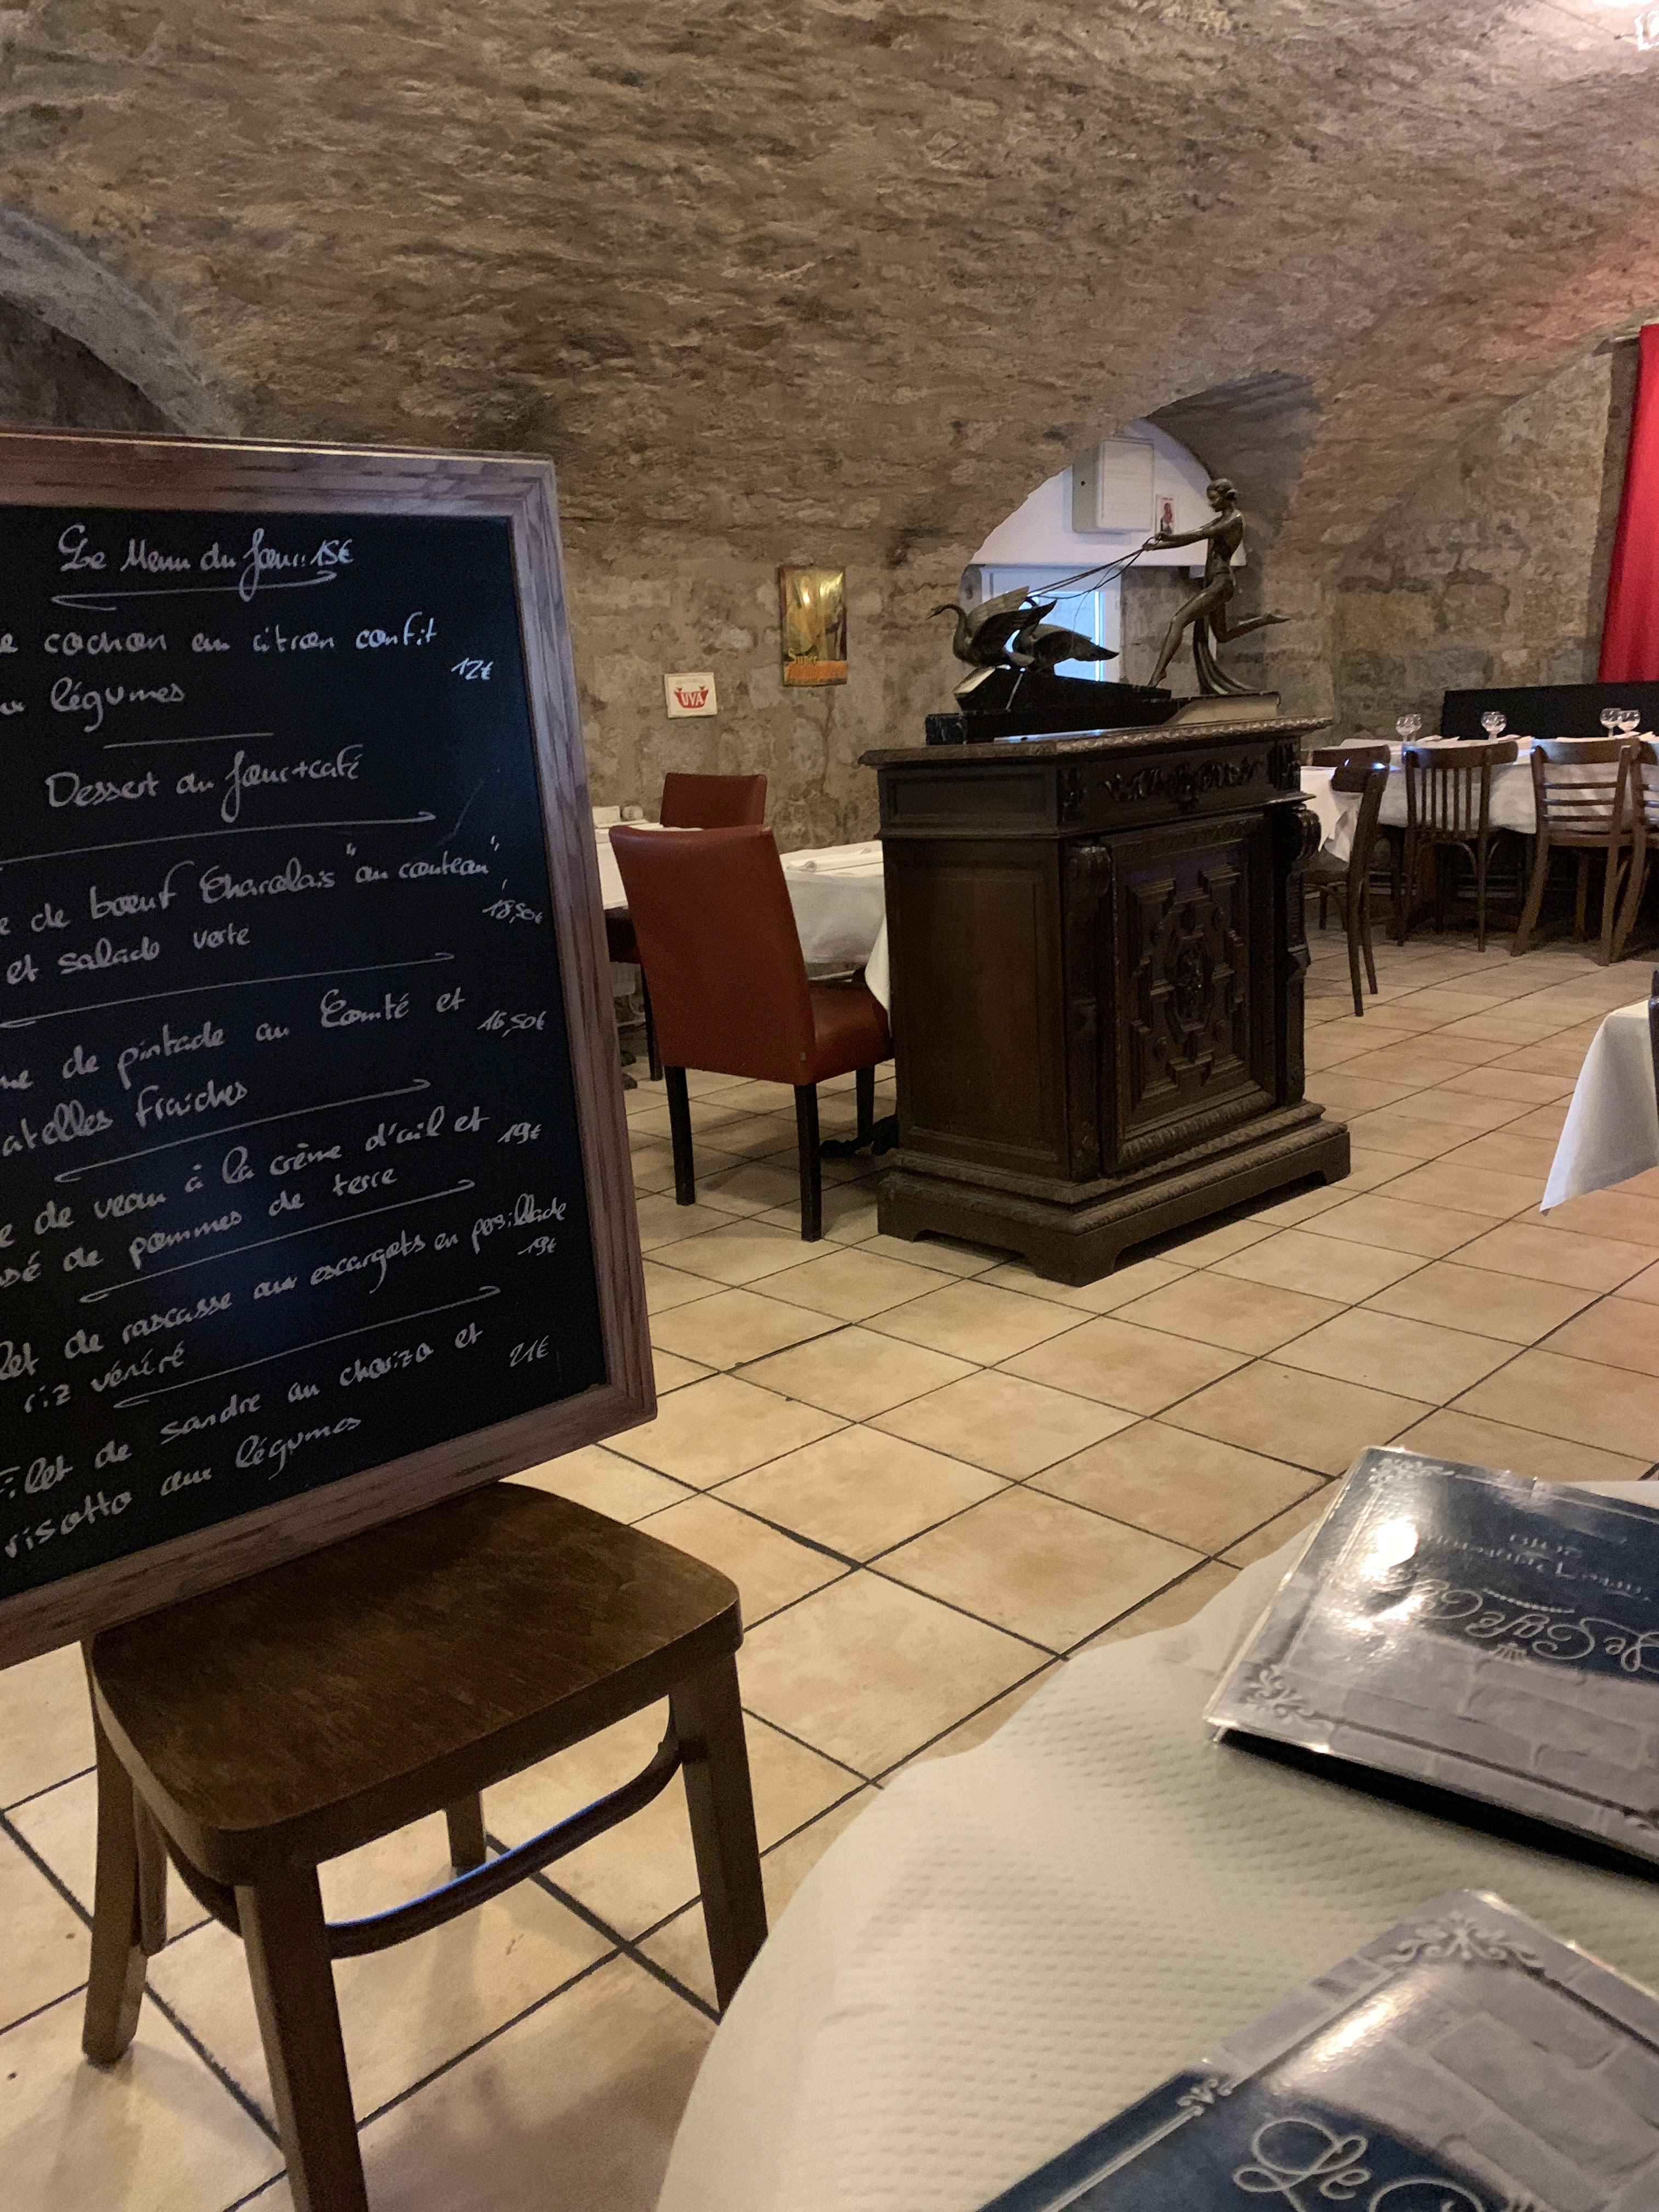 Le Menu du Jour: 15€
e cochon au citron confit
12€
légumes
Dessert du Jour+café
e de bœuf Charolais "au couteau"
18,50€
et salade verte
ne de pintade au Comté et
16,50€
atelles fraiches
e de veau à la crème d'ail et
19€
sé de pommes de terre
let de rascasse aux escargots en persillade
19€
riz vénéré
Filet de sandre au chorizo et
21€
risotto aux légumes
UVA
Suze
Le Café
Le